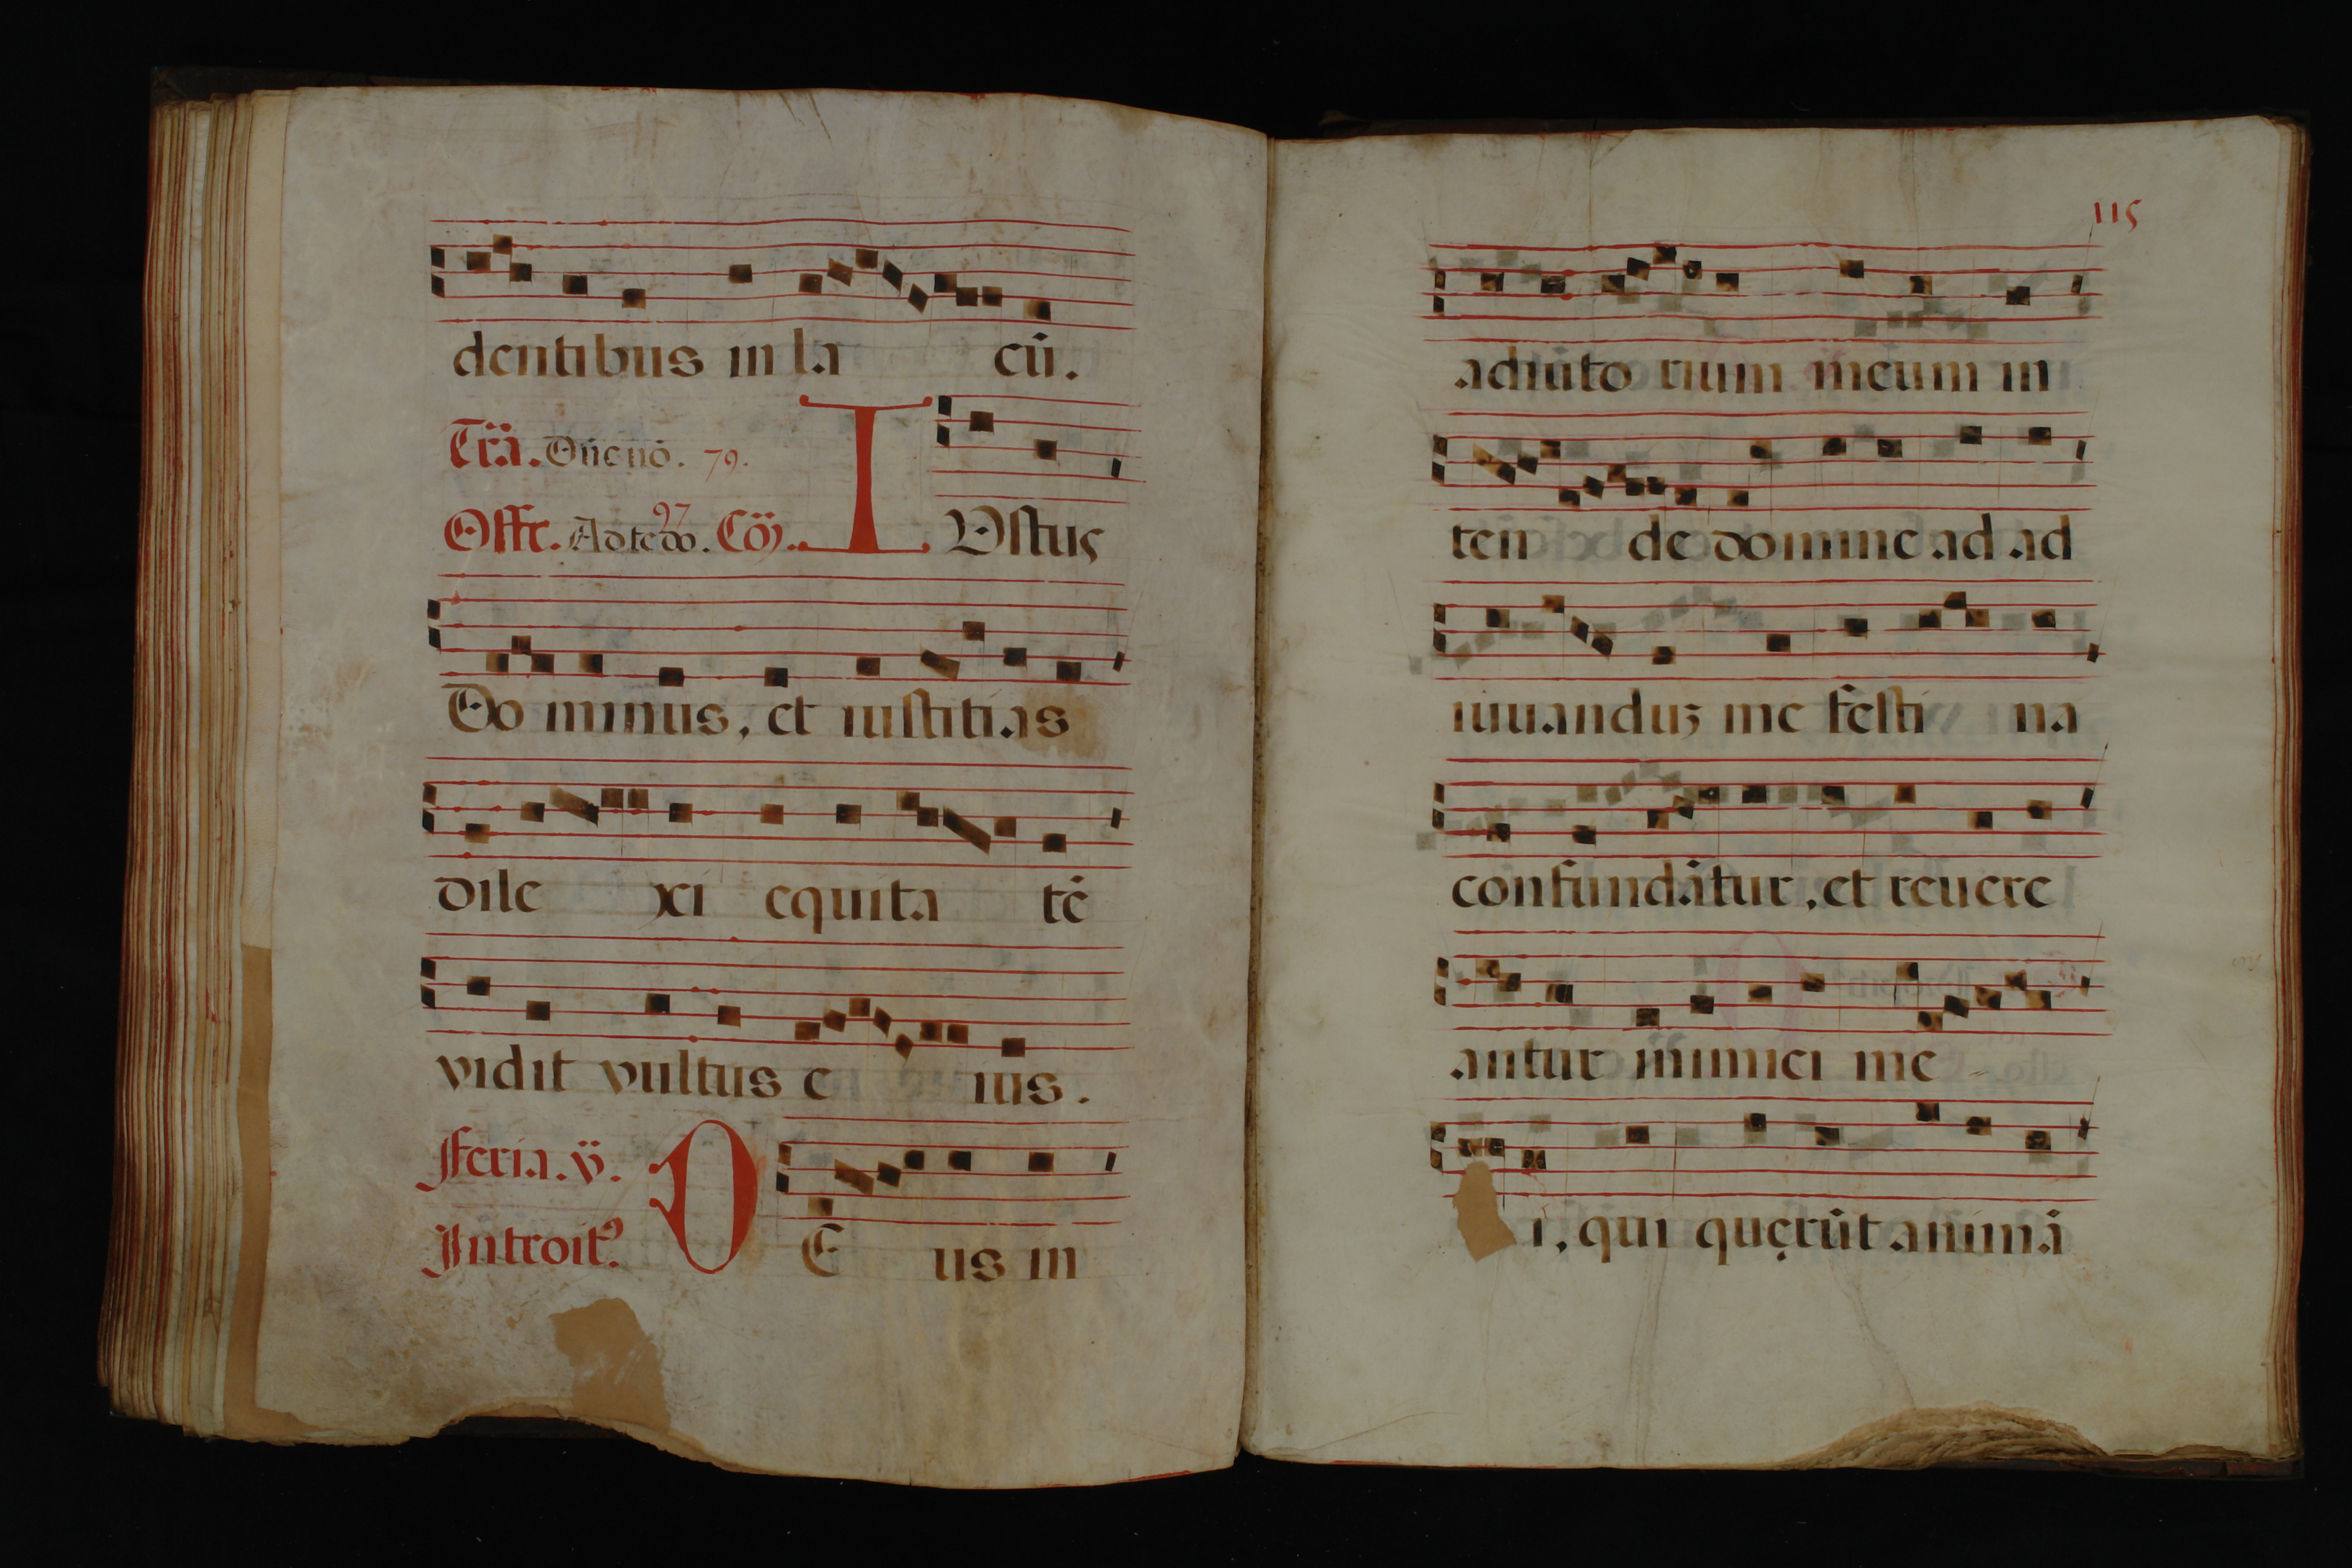 dentibus in la cū.
Tra. Dñe nō. 79.
97
Offe. Ad te do. Cō. I Ustus
Do minus, et iustitias
dile xi equita tē
vidit vultus e ius.
Feria. v.
Introit⁹. D E us in
115
adiuto rium meum in
ten de domine ad ad
iuuanduꝫ me festi na
confundātur, et reuere
antur inimici me
i, qui quęrūt animā